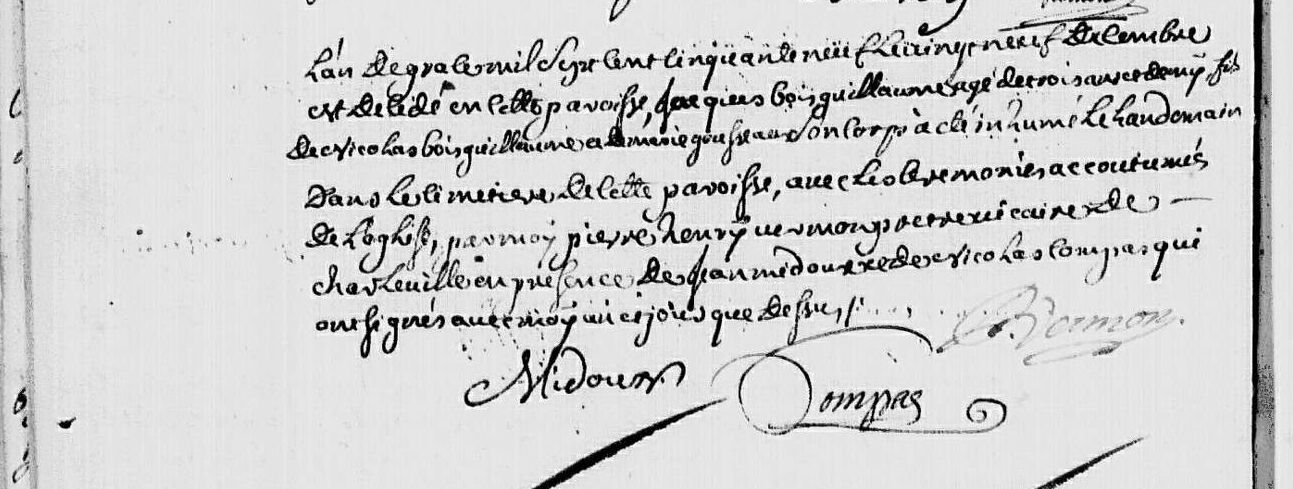 L'an de grace mil sept cent cinquante neuf le vingt neuf decembre
est decedé en cette paroisse, jacques bois guillaume agé de trois ans et demÿ, fils
de nicolas bois guillaume et de marie son corps a eté inhumé le landemain
dans le cimetiere de cette paroisse, avec les ceremonies accoutumés
de l'eglise, par moÿ pierre henrÿ vermon pretre vicaire de
charleville en presence de jean midoux et de nicolas compas qui
ont signés avec moÿ an et jours que dessus
Vermon.
Midoux
Compas